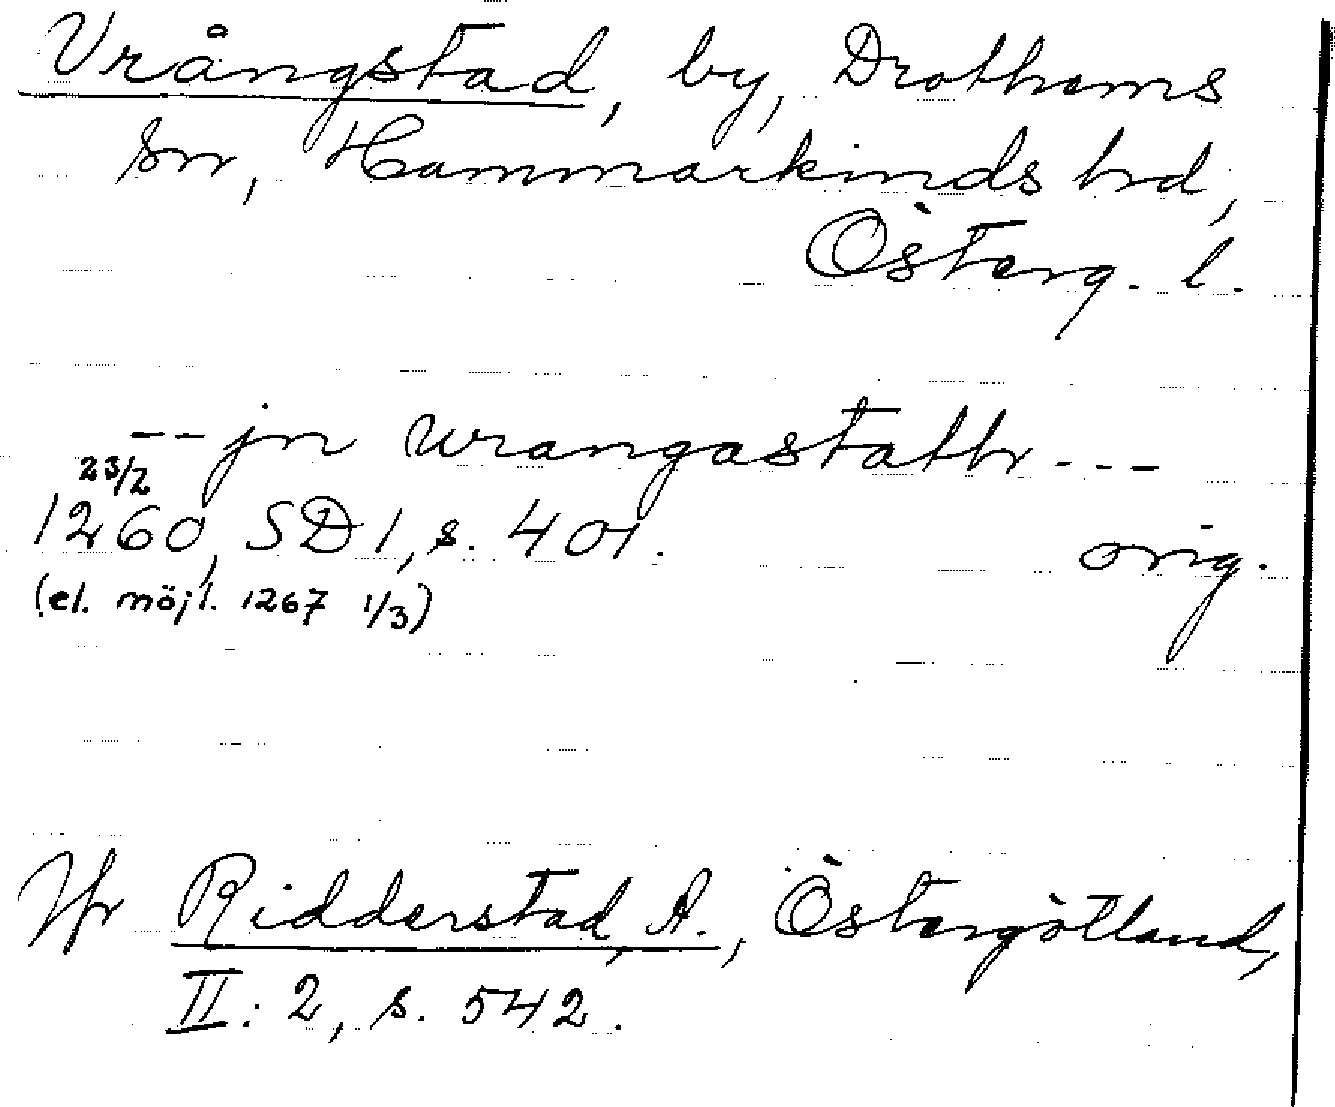 Vrångstad, by, Drothems
sn, Hammarkinds hrd,
Österg. l.
-- jn wrangastathr ---
23/2
1260, SD 1, s. 401. orig.
(el. möjl. 1267 1/3)
Jfr Ridderstad, A., Östergötland,
II: 2, s. 542.